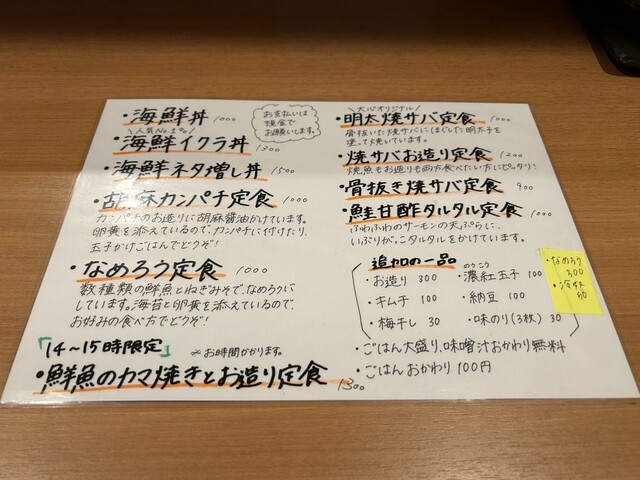 ・海鮮丼 1000
お支払いは
現金で
お願いします。
人気No.1!!
・海鮮イクラ丼 1300
・海鮮ネタ増し丼 1500
・胡麻カンパチ定食 1000
カンパチのお造りに胡麻醤油かけています。
卵黄を添えているので、カンパチに付けたり、
玉子かけごはんでどうぞ!
・なめろう定食 1000
数種類の鮮魚とねぎみそで、なめろうに
しています。海苔と卵黄を添えているので、
お好みの食べ方でどうぞ!
「14〜15時限定」 ※お時間かかります。
・鮮魚のカマ焼きとお造り定食 1300
オリジナル
・明太焼サバ定食 1000
骨抜いた焼サバにほぐした明太子を
塗って焼いています。
・焼サバお造り定食 1200
焼魚もお造りも両方食べたい方にピッタリ!
・骨抜き焼サバ定食 900
・鮭甘酢タルタル定食 1000
ふわふわのサーモンの天ぷらに、
いぶりがっこタルタルをかけています。
追加の一品
・お造り 300
・濃紅玉子 100
のうこう
・キムチ 100
・納豆 100
・梅干し 30
・味のり(3枚) 30
・なめろう
300
50
・ごはん大盛り、味噌汁おかわり無料
・ごはんおかわり 100円